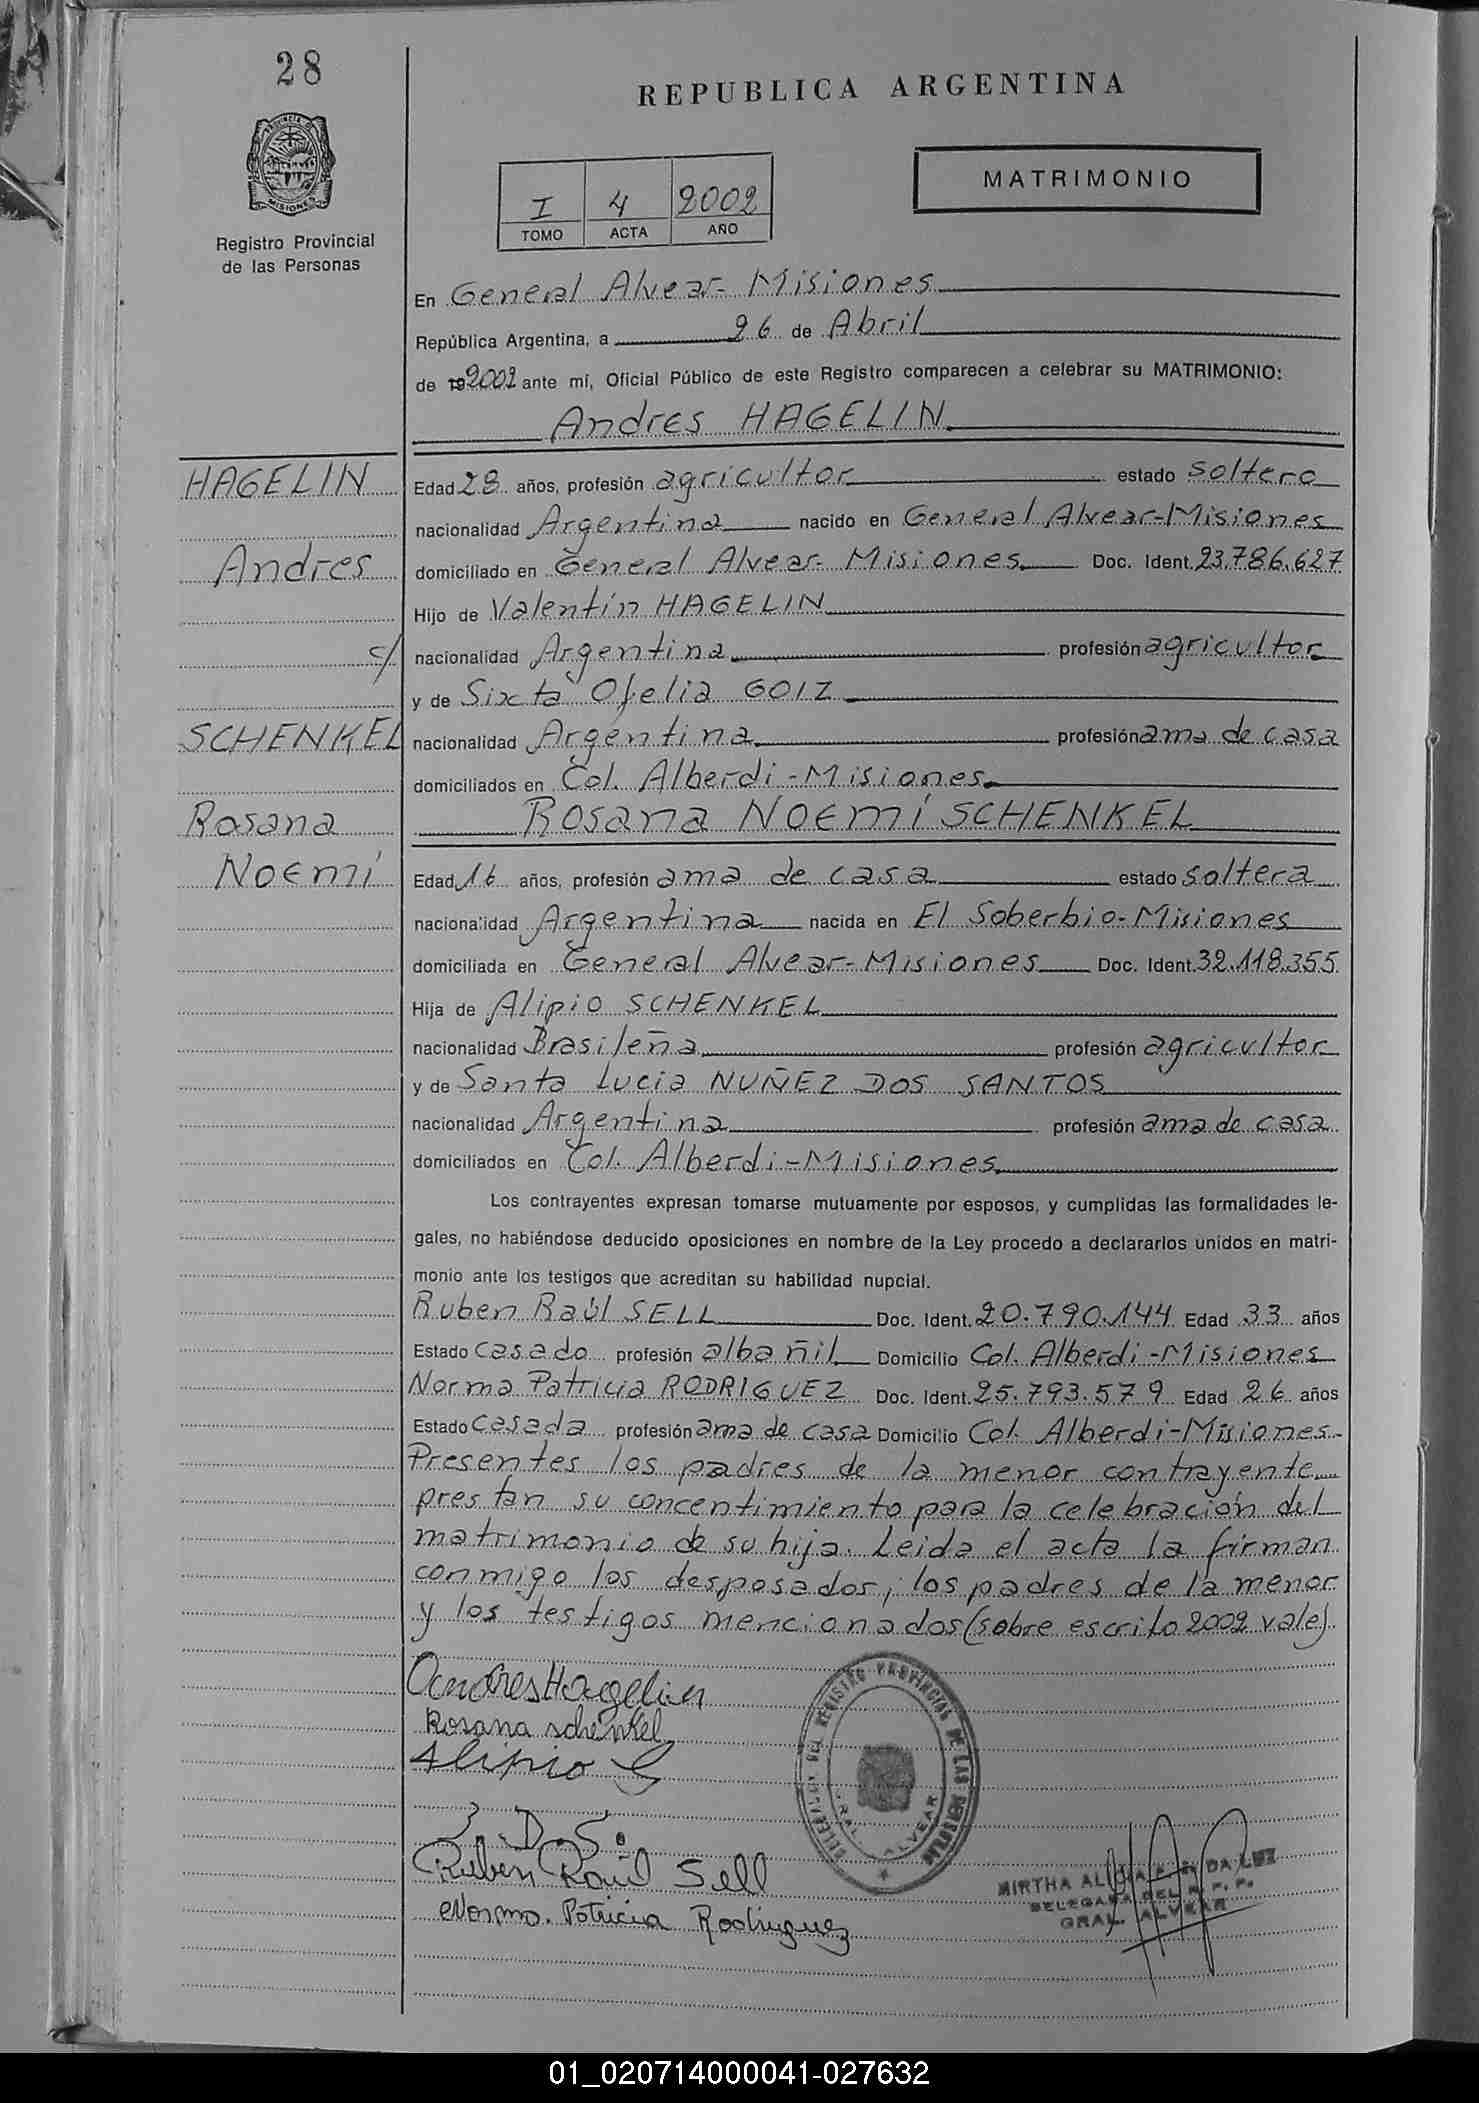 28
REPUBLICA ARGENTINA
PROVINCIA DE
MISIONES
Registro Provincial
de las Personas
I 4 2002
TOMO ACTA AÑO
MATRIMONIO
En General Alvear- Misiones
República Argentina, a 26 de Abril
de 192002 ante mí, Oficial Público de este Registro comparecen a celebrar su MATRIMONIO:
Andres HAGELIN
HAGELIN
Andres
c/
SCHENKEL
Rosana
Noemí
Edad 28 años, profesión agricultor estado soltero
nacionalidad Argentina nacido en General Alvear-Misiones
domiciliado en General Alvear- Misiones Doc. Ident. 23.786.627
Hijo de Valentín HAGELIN
nacionalidad Argentina profesión agricultor
y de Sixta Ofelia GOIZ
nacionalidad Argentina profesión ama de casa
domiciliados en Col. Alberdi-Misiones
Rosana Noemí SCHENKEL
Edad 16 años, profesión ama de casa estado soltera
nacionalidad Argentina nacida en El Soberbio-Misiones
domiciliada en General Alvear-Misiones Doc. Ident. 32.118.355
Hija de Alipio SCHENKEL
nacionalidad Brasileña profesión agricultor
y de Santa Lucia NUÑEZ DOS SANTOS
nacionalidad Argentina profesión ama de casa
domiciliados en Col. Alberdi-Misiones
Los contrayentes expresan tomarse mutuamente por esposos, y cumplidas las formalidades le-
gales, no habiéndose deducido oposiciones en nombre de la Ley procedo a declararlos unidos en matri-
monio ante los testigos que acreditan su habilidad nupcial.
Ruben Raúl SELL Doc. Ident. 20.790.144 Edad 33 años
Estado casado profesión albañil Domicilio Col. Alberdi-Misiones
Norma Patricia RODRIGUEZ Doc. Ident. 25.793.579 Edad 26 años
Estado casada profesión ama de casa Domicilio Col. Alberdi-Misiones.
Presentes los padres de la menor contrayente
prestan su concentimiento para la celebración del
matrimonio de su hija. Leida el acta la firman
conmigo los desposados, los padres de la menor
y los testigos mencionados (sobre escrito 2002 vale)
Andres Hagelin
Rosana schenkel
Alipio S
L. D. S.
Ruben Raúl Sell
Norma. Patricia Rodriguez
DEL REGISTRO PROVINCIAL DE LAS PERSONAS
GRAL. ALVEAR
MIRTHA ALICIA DA LUZ
DELEGADA DEL R. P. P.
GRAL. ALVEAR
01_020714000041-027632